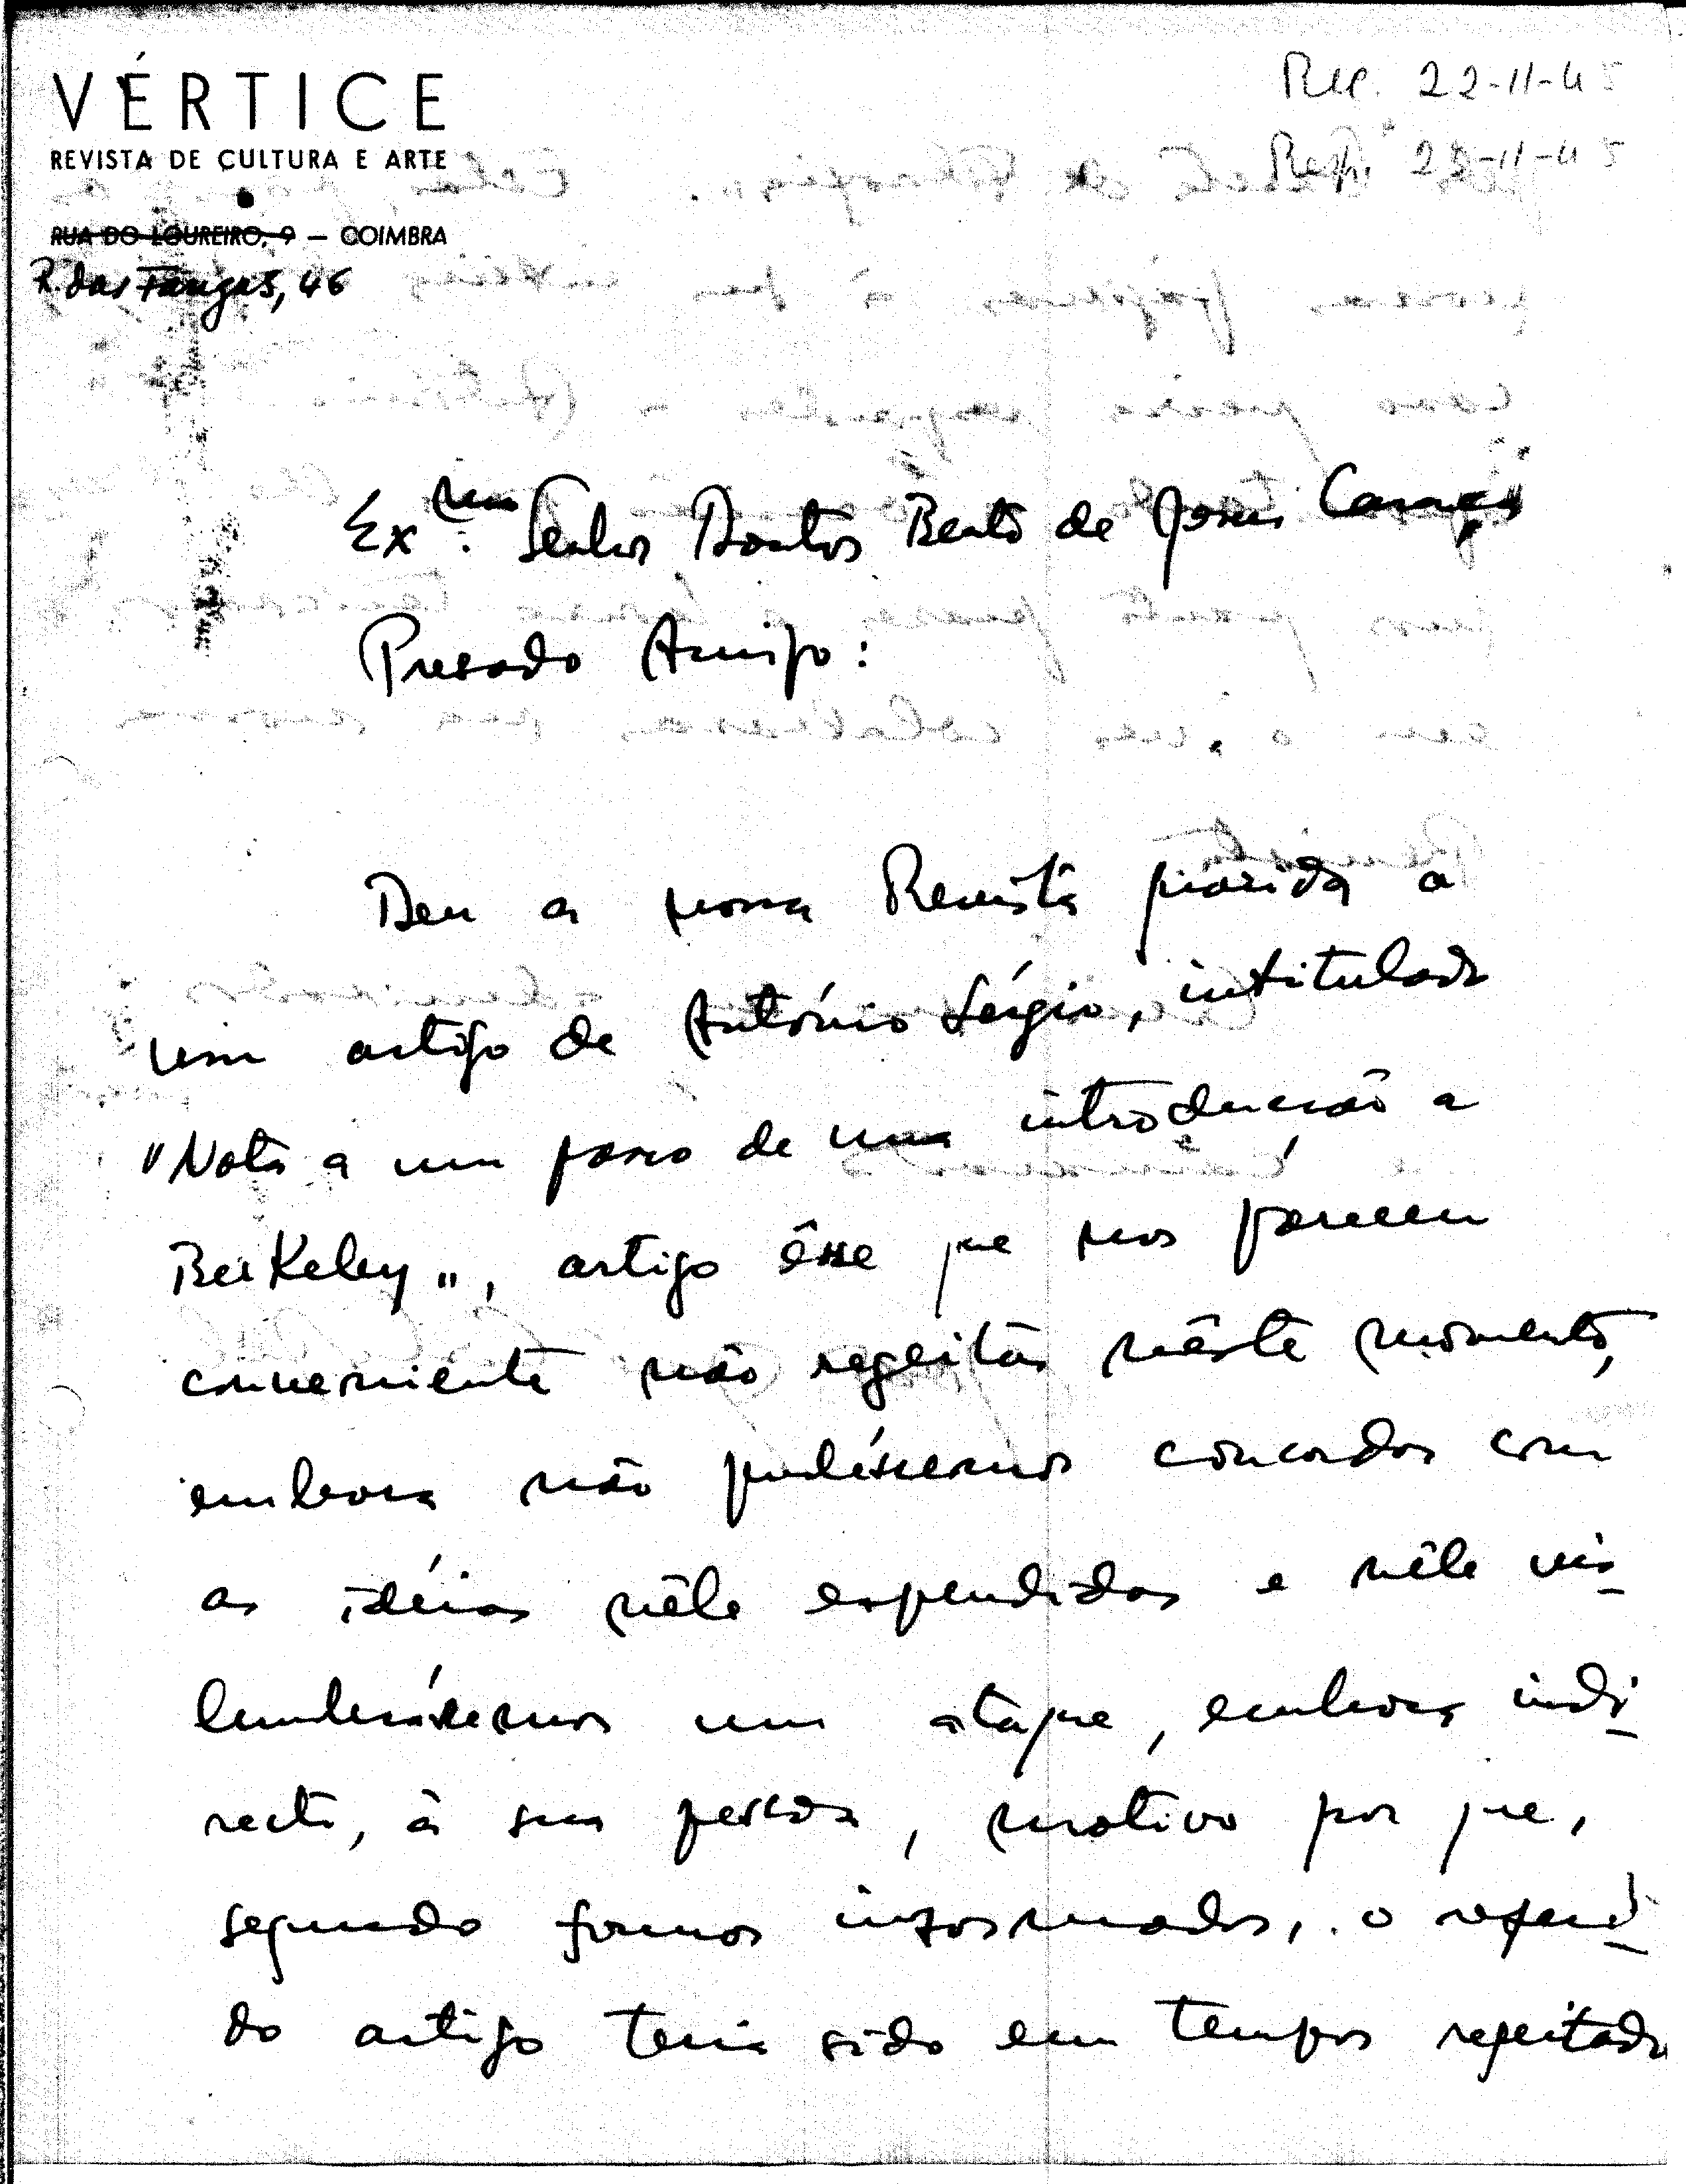 VÉRTICE
REVISTA DE CULTURA E ARTE
RUA DO LOUREIRO, 9 — COIMBRA
R. das Fangas, 46
Rec. 22-11-45
Resp. 23-11-45
Ex.mo Senhor Doutor Bento de Jesus Caraça
Presado Amigo:
Deu a nossa Revista guarida a
um artigo de António Sérgio, intitulado
"Nota a um passo de uma introdução a
Berkeley", artigo êsse que nos pareceu
conveniente não regeitar nêste momento,
embora não pudéssemos concordar com
as idéias nêle expendidas e nêle vis-
lumbrássemos um ataque, embora indi-
recto, à sua pessoa, motivo por que,
segundo fomos informados, o referi-
do artigo teria sido em tempos regeitado